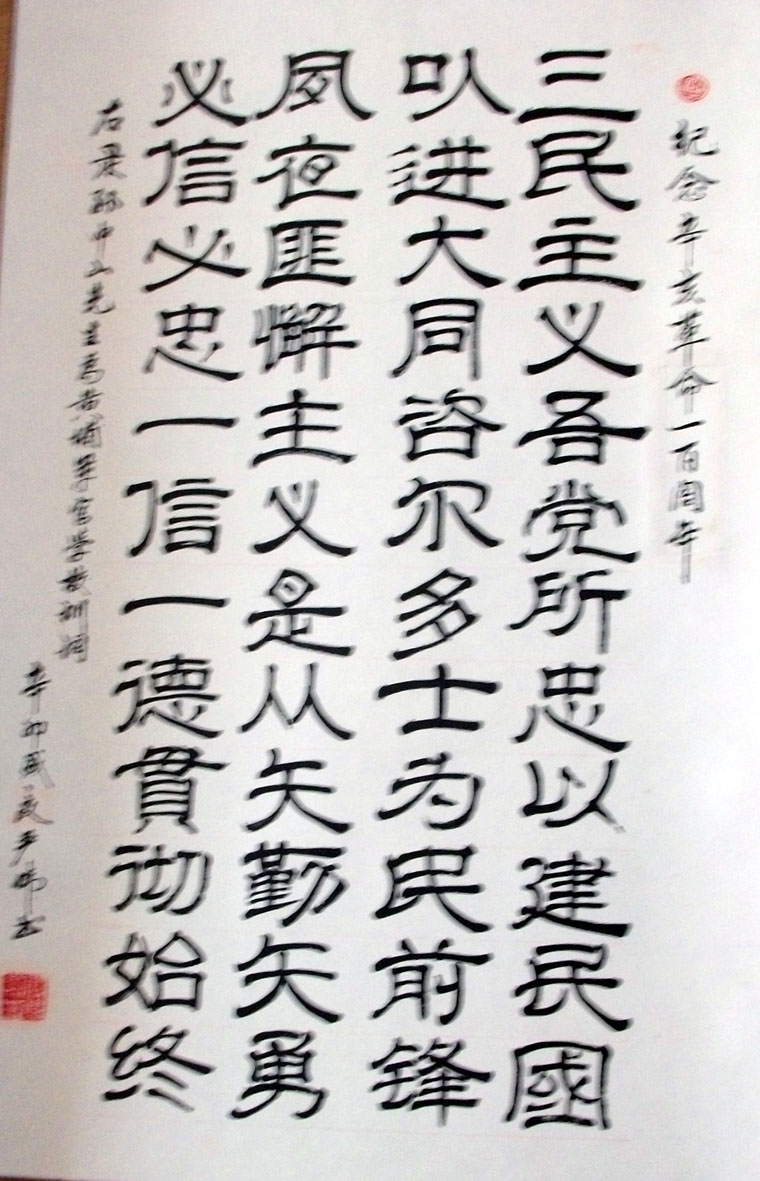 纪念辛亥革命一百周年
三民主义吾党所忠以建民國
以进大同咨尔多士为民前锋
夙夜匪懈主义是从矢勤矢勇
必信必忠一信一德貫彻始终
右录孙中山先生為黄埔军官学校训词
辛卯盛夏尹